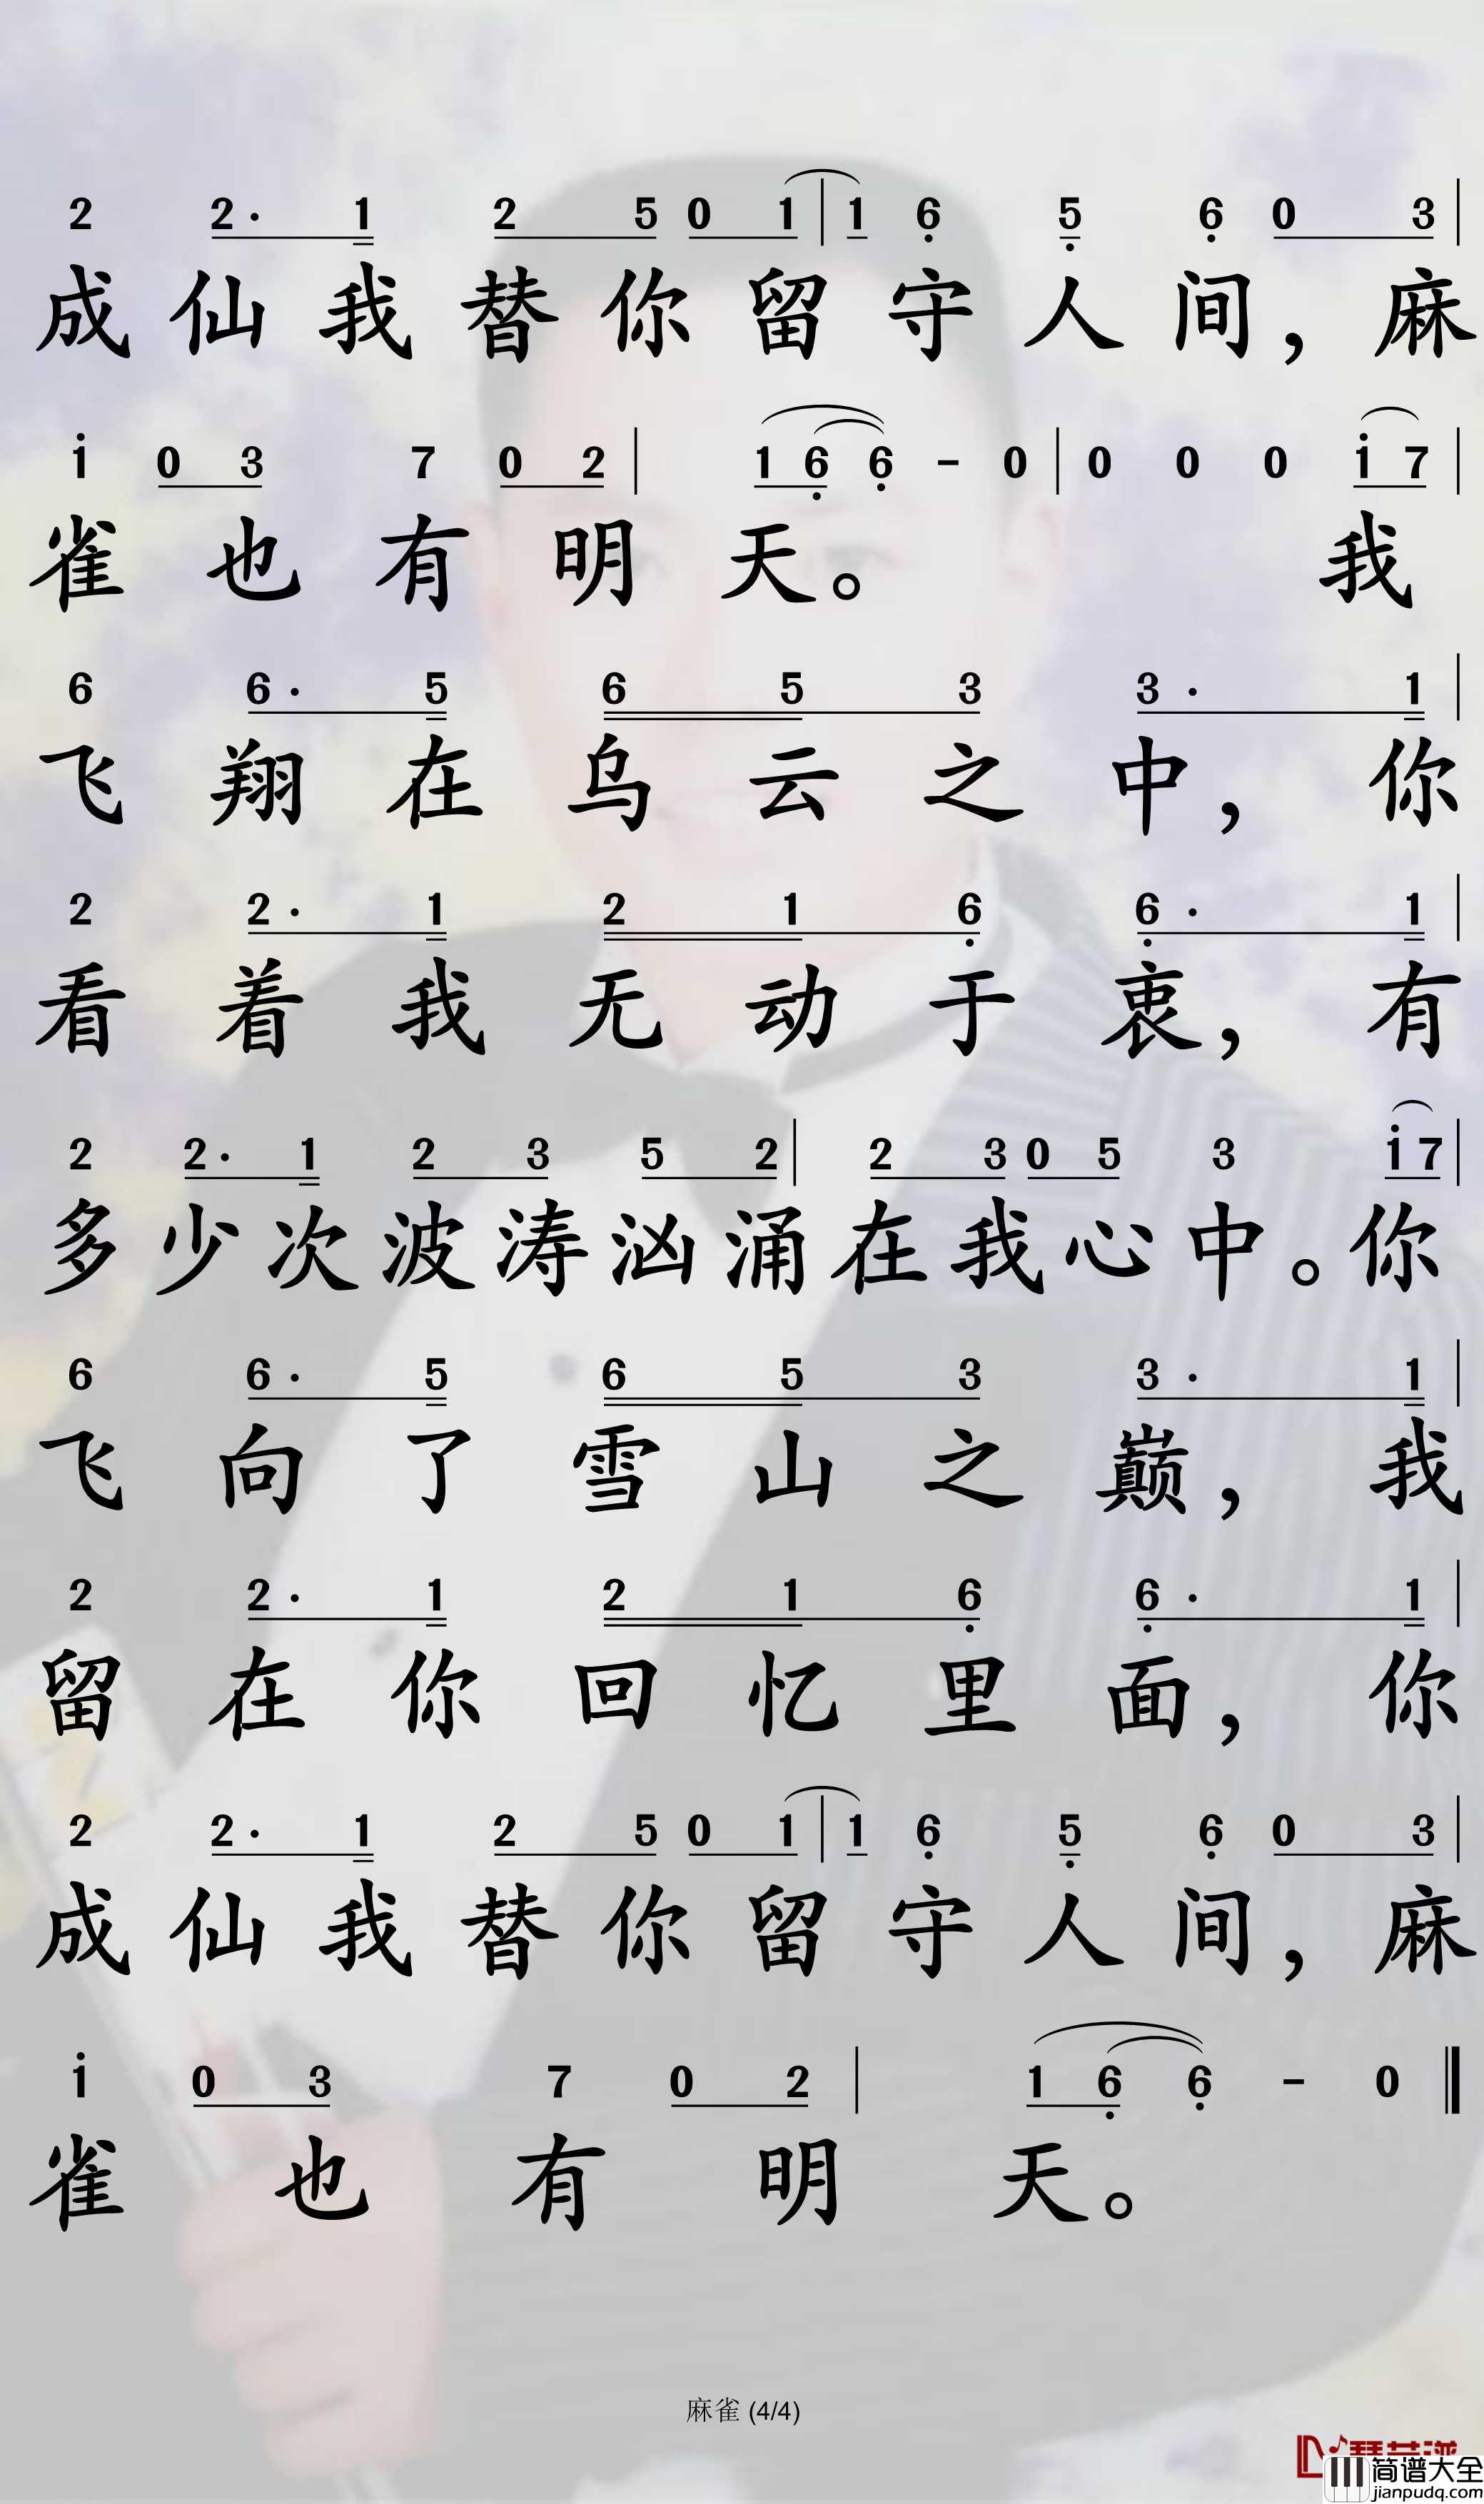 2 2· 1 2 5 0 1 | 1 6 5 6 0 3 |
成仙我替你留守人间，麻
i 0 3 7 0 2 | 1 6 6 - 0 | 0 0 0 i 7 |
雀也有明天。我
6 6· 5 6 5 3 3· 1 |
飞翔在乌云之中，你
2 2· 1 2 1 6 6· 1 |
看着我无动于衷，有
2 2· 1 2 3 5 2 | 2 3 0 5 3 i 7 |
多少次波涛汹涌在我心中。你
6 6· 5 6 5 3 3· 1 |
飞向了雪山之巅，我
2 2· 1 2 1 6 6· 1 |
留在你回忆里面，你
2 2· 1 2 5 0 1 | 1 6 5 6 0 3 |
成仙我替你留守人间，麻
i 0 3 7 0 2 | 1 6 6 - 0
雀也有明天。
麻雀 (4/4)
简谱大全
jianpudq.com